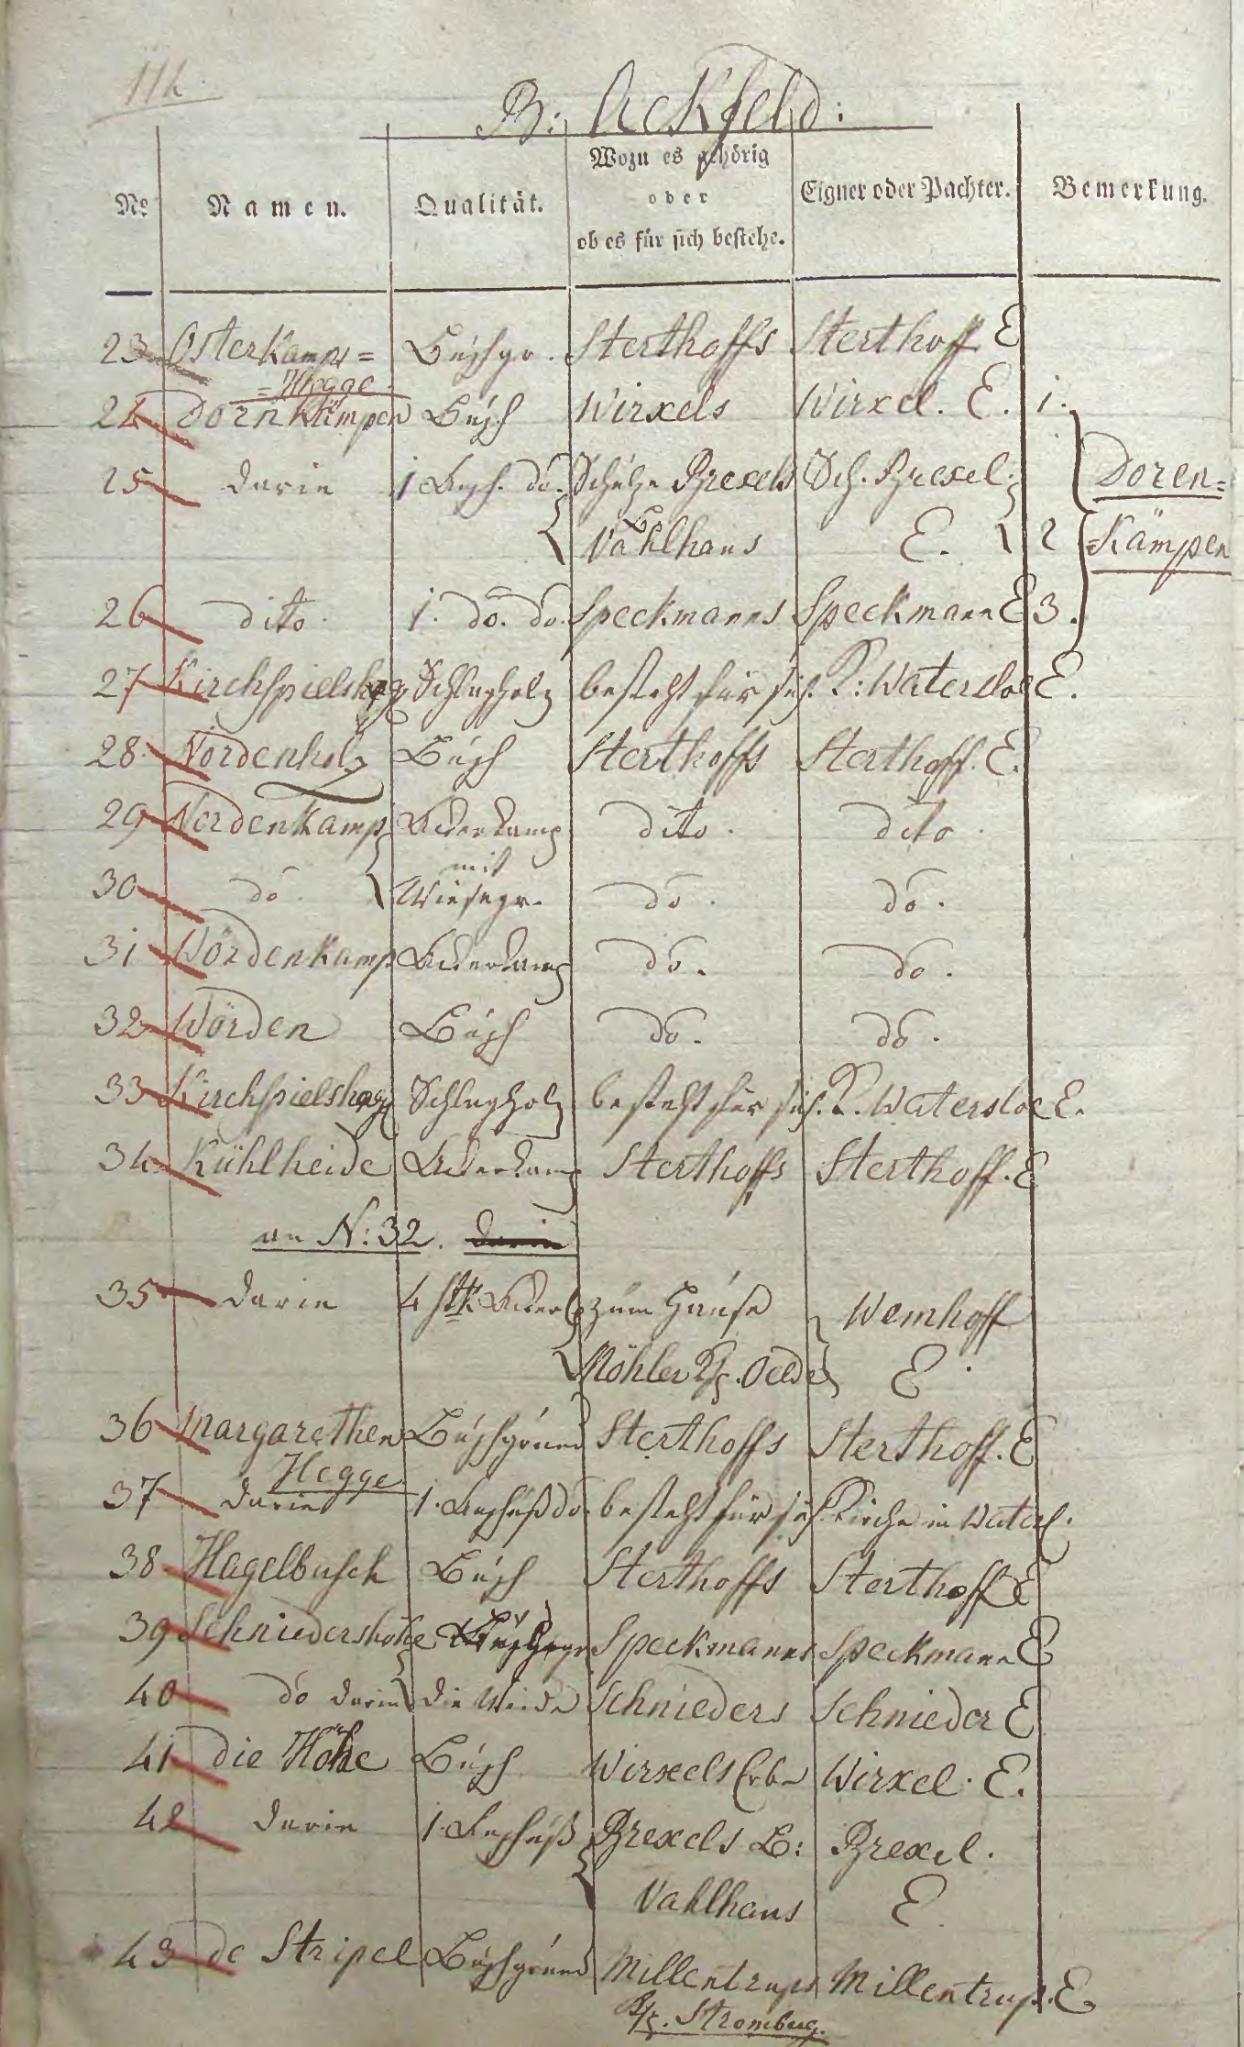 112.
B: Ackfeld:
No Namen. Qualität. Wozu es gehörig oder ob es für sich bestehe. Eigner oder Pachter. Bemerkung.
23 Osterkamps= Büschgr. Sterthoffs Sterthoff E
=Hegge
24 Dornkämpen Büsch Wirxels Wirxel. E. 1.
25 darin 1 do. Schulze Brexels Sch. Brexel. Doren=
Vahlhaus E. 2 =Kämpen
26 dito. 1. do. do. Speckmanns Speckmann E 3.
27 Kirchspielshegg Schlagholz besteht für sich. K: Watersloe E.
28. Nordenholz Büsch Sterthoffs Sterthoff. E.
29 Nordenkamp Ackerkamp dito. dito.
mit
30 do. Wiesegr. do. do.
31 Wördenkamp Ackerkamp do. do.
32 Wörden Büsch do. do.
33 Kirchspielshegg Schlagholz besteht für sich. K. Watersloe E.
34 Kühlheide Ackerkamp Sterthoffs Sterthoff. E
an N: 32. darin
35 darin 4 Stk. zum Hause Wemhoff
Möhler Ksp. Oelde E.
36 Margarethen Büschgrund Sterthoffs Sterthoff. E
Hegge
37 darin 1. do. besteht für sich. Kirche in Watersl.
38 Hagelbusch Büsch Sterthoffs Sterthoff E
39 Schniedershöhe Speckmanns Speckmann E
40 do darin die Weide Schnieders Schnieder E
41 die Höhe Büsch Wirxels Erbe Wirxel. E.
42 darin 1. Brexels B: Brexel.
Vahlhaus E.
43 de Stripel Büschgrund Millentrups Millentrup. E
Ksp. Stromberg.